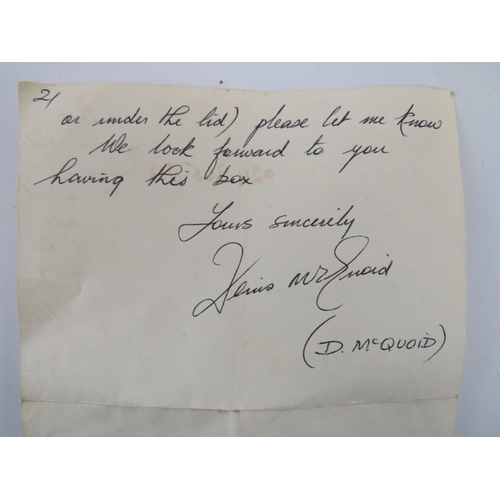 2/
or under the lid) please let me know
We look forward to you
having this box
Yours sincerely
Denis McQuoid
(D. McQUOID)